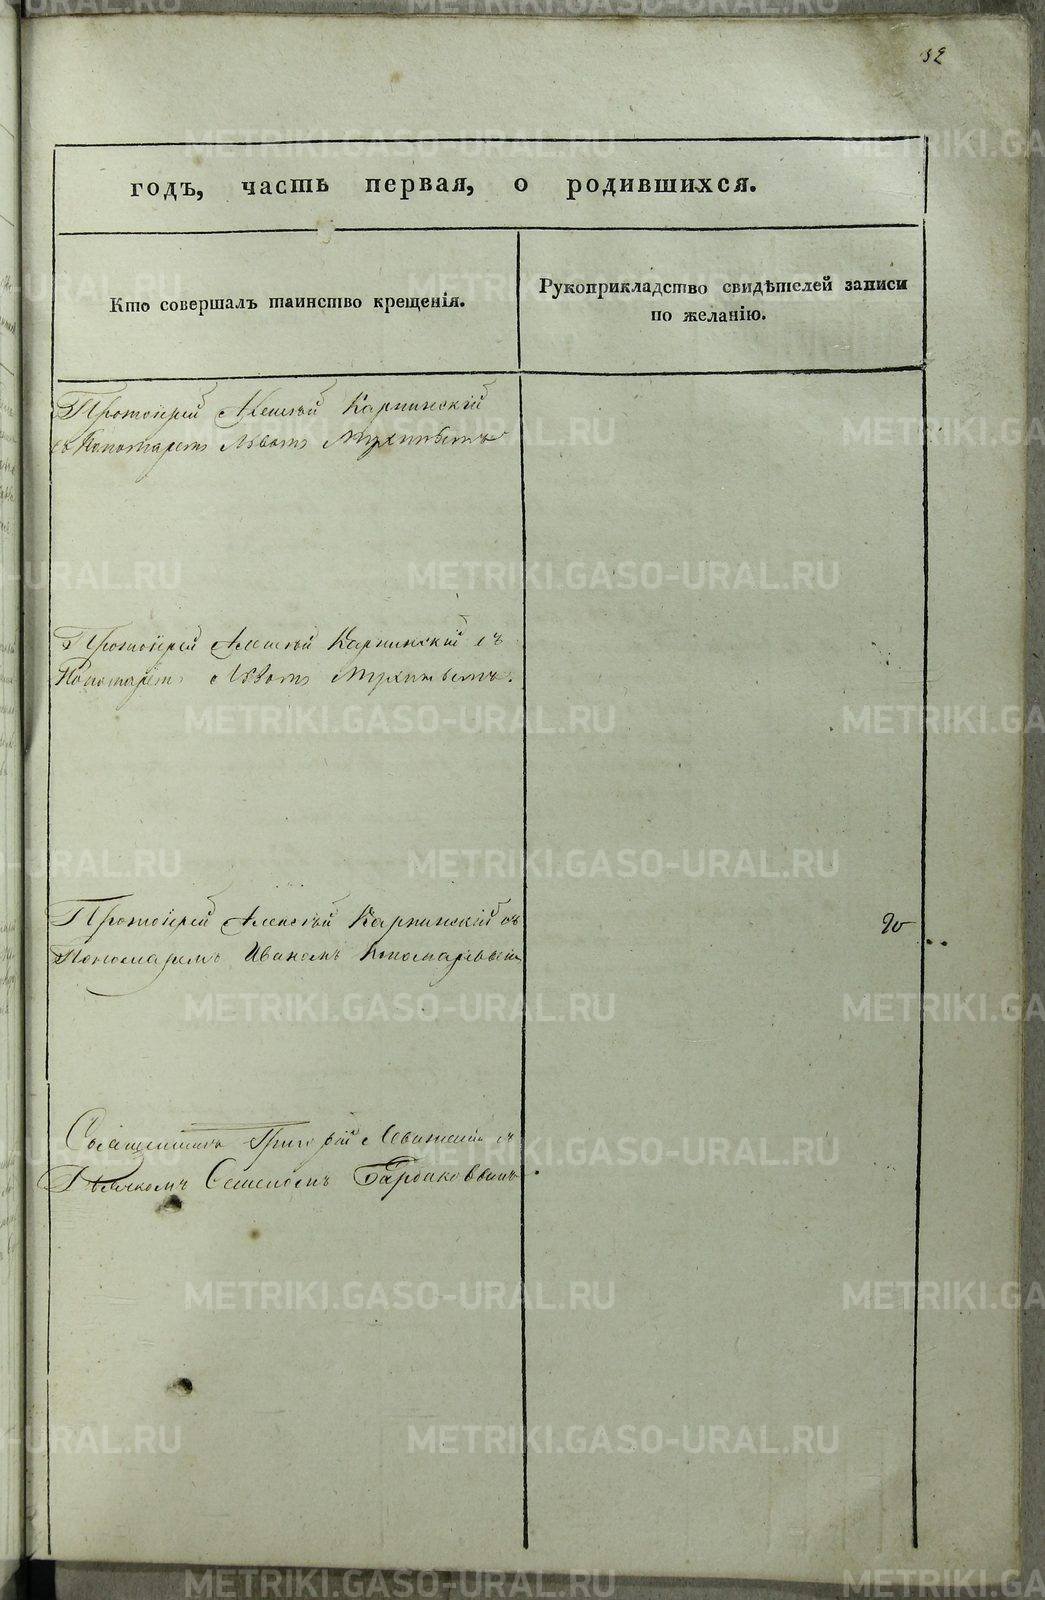 32
годъ, часть первая, о родившихся.
Кто совершалъ таинство крещенія.
Рукоприкладство свидѣтелей записи
по желанію.
Протоіерей Алексѣй Карпинскій
съ Пономаремъ Львомъ
Протоіерей Алексѣй Карпинскій съ
Пономаремъ Львомъ
Протоіерей Алексѣй Карпинскій съ
Пономаремъ Иваномъ Пономаревымъ
Священникъ Григорій съ
Дьячкомъ Семеномъ
METRIKI.GASO-URAL.RU